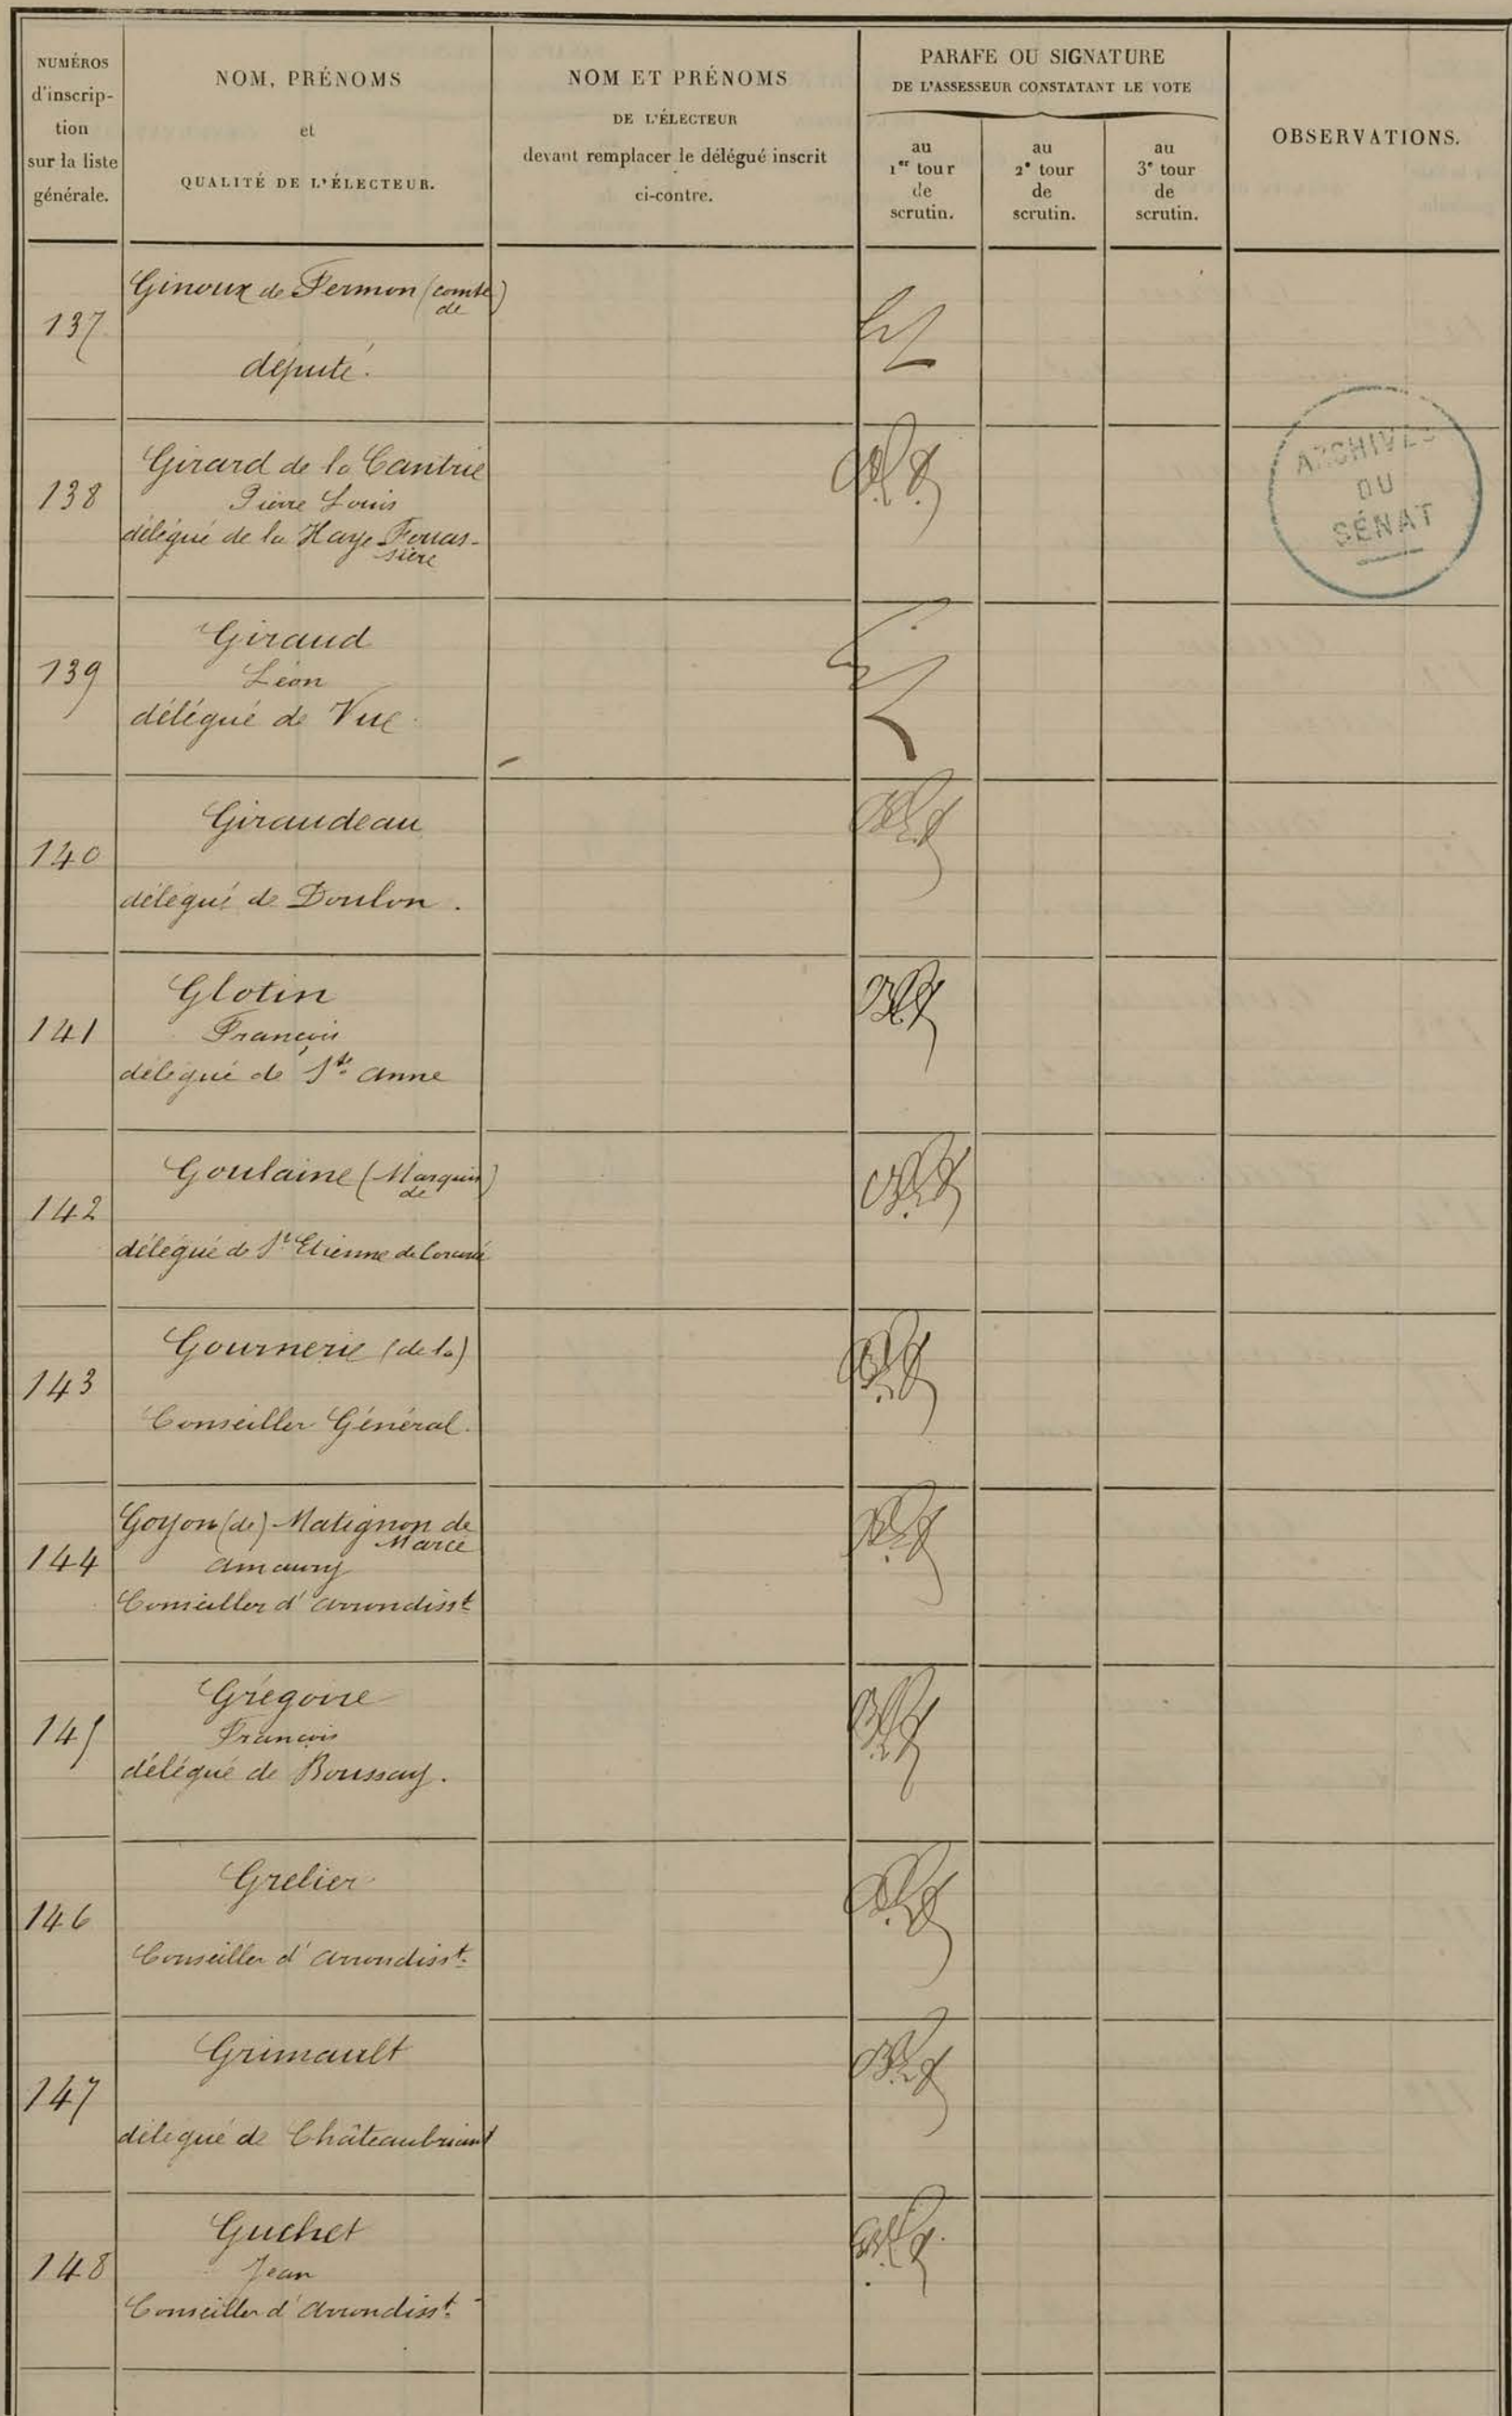 NUMÉROS
d'inscrip-
tion
sur la liste
générale.
NOM, PRÉNOMS
et
QUALITÉ DE L'ÉLECTEUR.
NOM ET PRÉNOMS
DE L'ÉLECTEUR
devant remplacer le délégué inscrit
ci-contre.
PARAFE OU SIGNATURE
DE L'ASSESSEUR CONSTATANT LE VOTE
au
1er tour
de
scrutin.
au
2e tour
de
scrutin.
au
3e tour
de
scrutin.
OBSERVATIONS.
137
Ginoux de Fermon (comte
de)
député.
138
Girard de la Cantrie
Pierre Louis
délégué de la Haye-Fouas-
sière
ARCHIVES
DU
SÉNAT
139
Giraud
Léon
délégué de Vue
140
Giraudeau
délégué de Doulon.
141
Glotin
François
délégué de Ste Anne
142
Goulaine (Marquis
de)
délégué de St Etienne de Corcoué
143
Gournerie (de la)
Conseiller Général.
144
Goyon (de) Matignon de
Marcé
Amaury
Conseiller d'arrondisst
145
Grégoire
François
délégué de Boussay.
146
Grelier
Conseiller d'arrondisst.
147
Grimault
délégué de Châteaubriant
148
Guchet
Jean
Conseiller d'arrondisst.